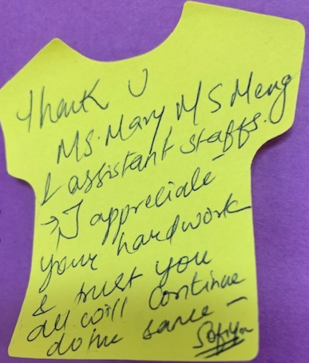 Thank U
Ms. Mary M S Meng
& assistant staffs.
→ I appreciate
your hardwork
& trust you
all will continue
do the same –